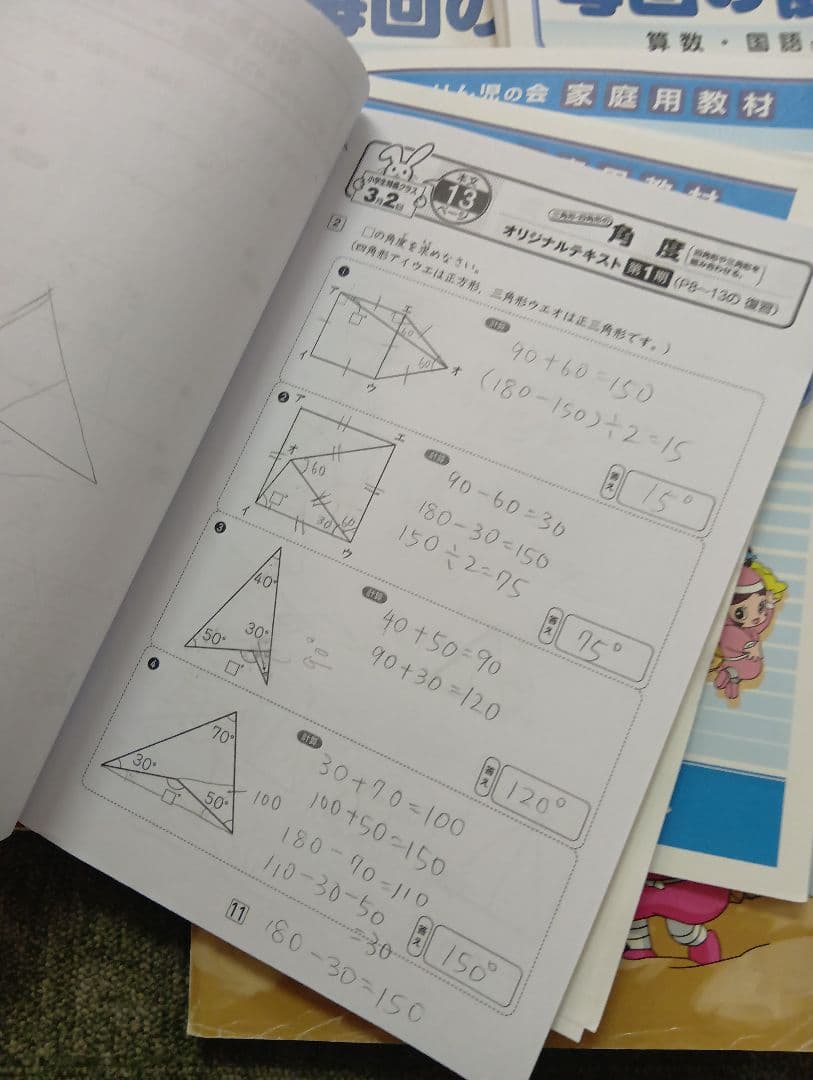 毎回の
算数・国語
児の会 家庭用教材
小学生特進クラス
3月2回
本文
13
ページ
三角形・四角形の
角 度
四角形や三角形を
組み合わせる。
オリジナルテキスト 第1期 (P8〜13の 復習)
2 □の角度を求めなさい。
(四角形アイウエは正方形，三角形ウエオは正三角形です。)
❶
ア
エ
イ
ウ
オ
□°
60
60
計算
90+60=150
(180-150)÷2=15
答え
15°
❷
ア
エ
オ
イ
ウ
60
□°
30
60
計算
90-60=30
180-30=150
150÷2=75
答え
75°
❸
40°
50°
30°
□°
計算
40+50=90
90+30=120
答え
120°
❹
70°
30°
50°
□°
100
計算
30+70=100
100+50=150
180-70=110
110-30-50
=30
180-30=150
答え
150°
11